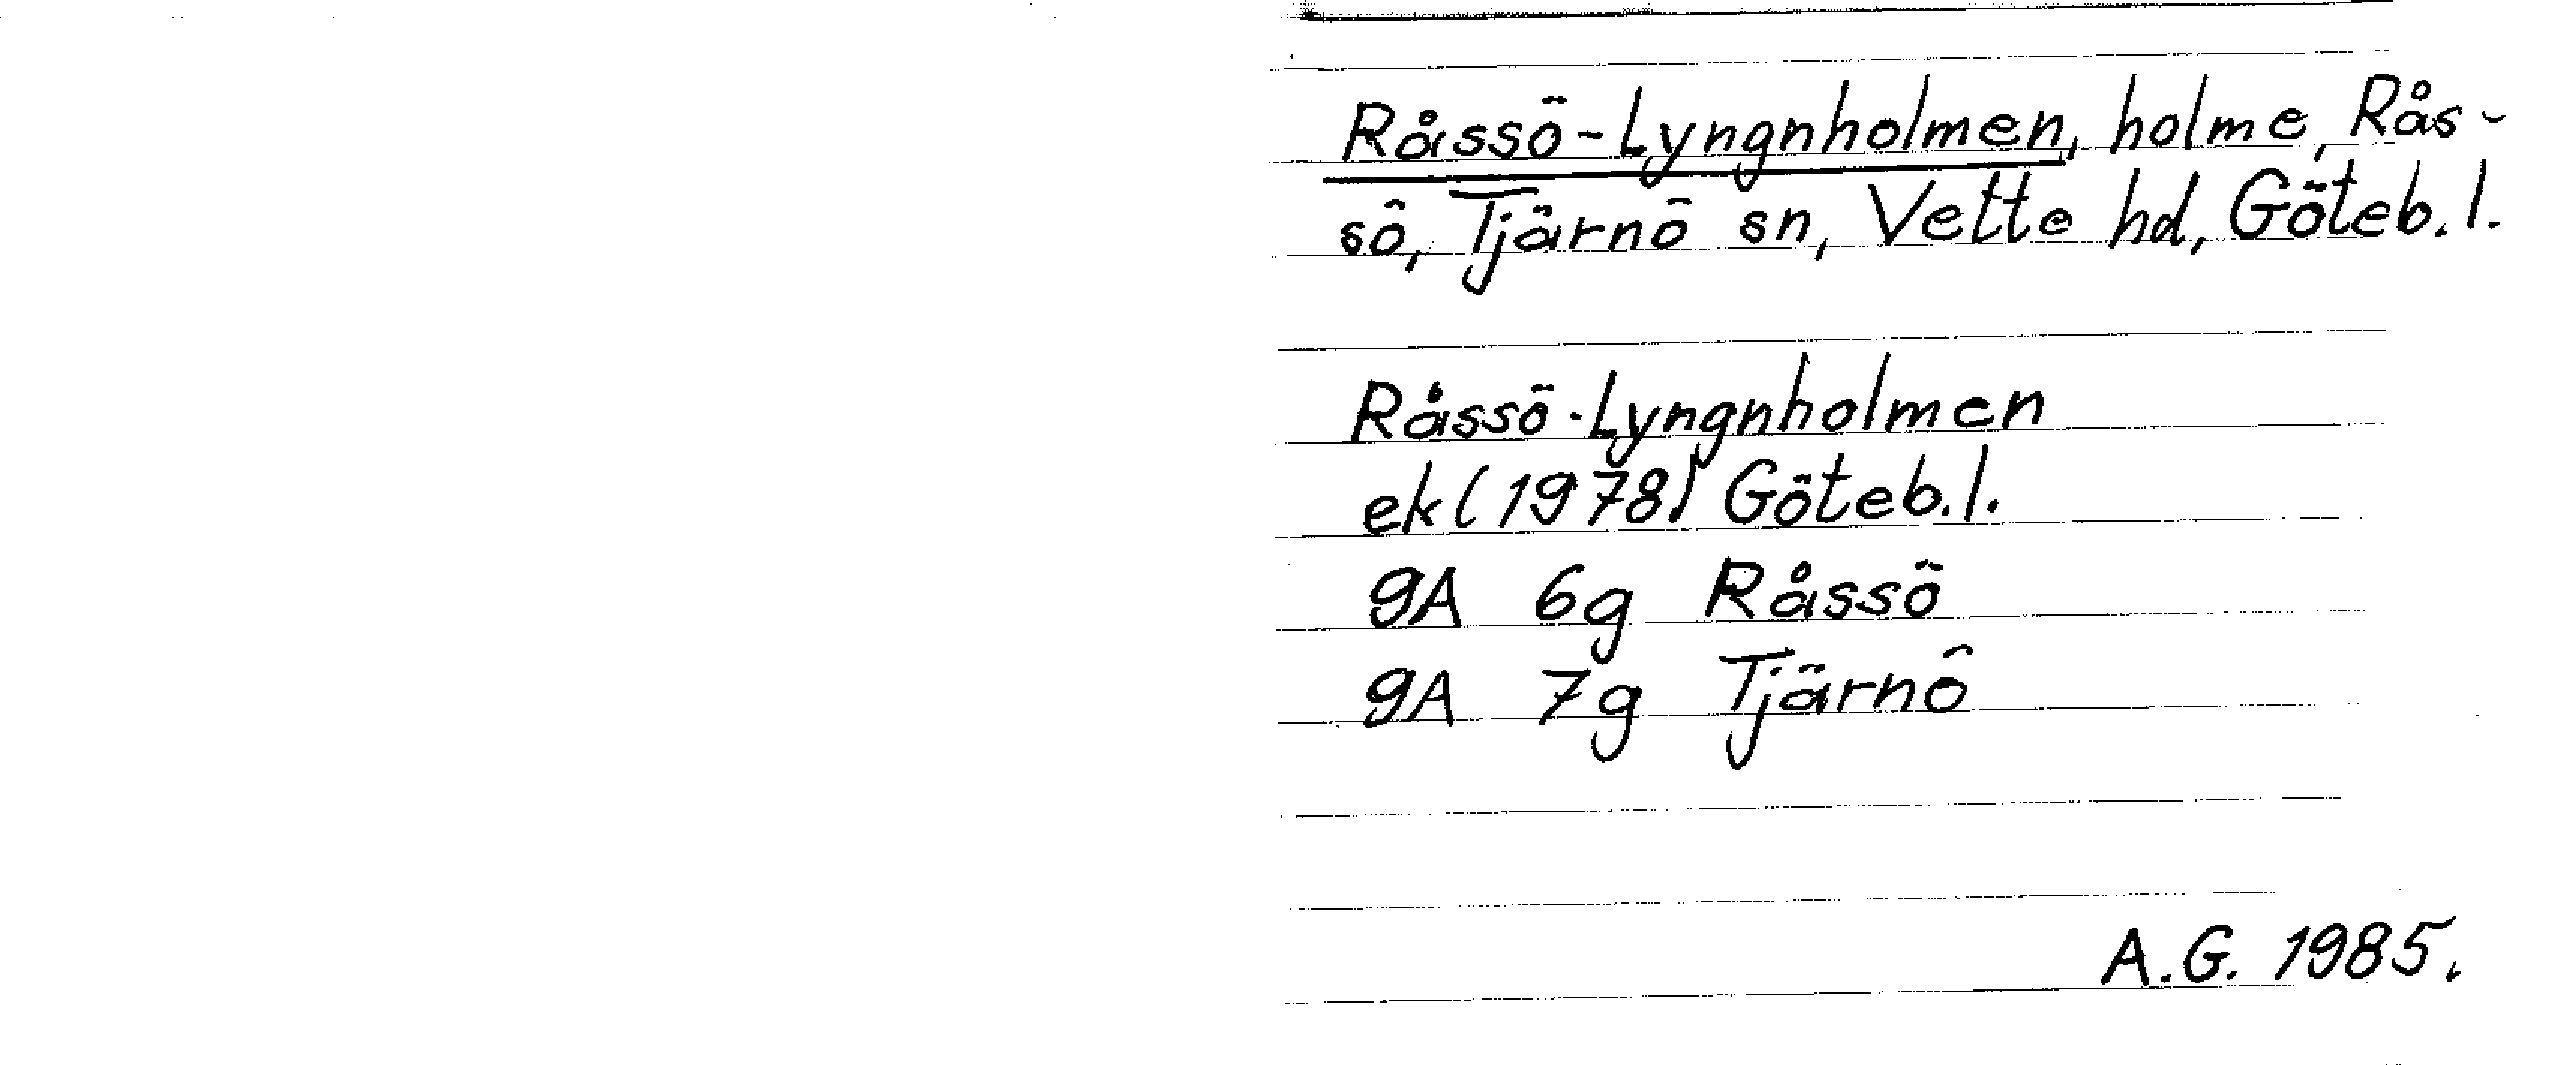 Råssö-Lyngnholmen, holme, Rås-
sö, Tjärnö sn, Vette hd, Göteb.l.
Råssö-Lyngnholmen
ek (1978) Göteb.l.
9A 6g Råssö
9A 7g Tjärnö
A.G. 1985.